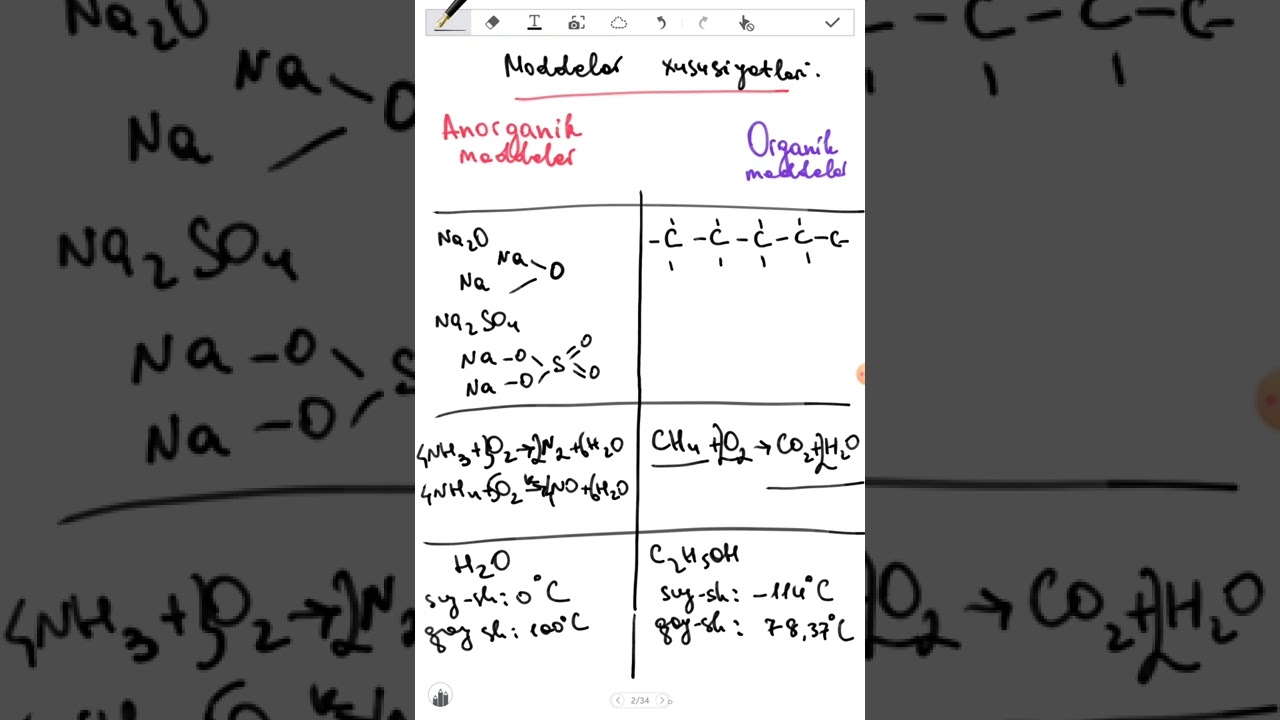 Moddelar xususiyatlari.
Anorganik
moddelar
Organik
moddelar
Na2O
Na
Na O
Na2SO4
Na-O S O
Na-O O
-C-C-C-C-C-
4NH3+3O2→2N2+6H2O
4NH4+5O2 4NO+6H2O
CH4+2O2→CO2+2H2O
H2O
suy-sh: 0°C
qay sh: 100°C
C2H5OH
suy-sh: -114°C
qay-sh: 78,37°C
2/34